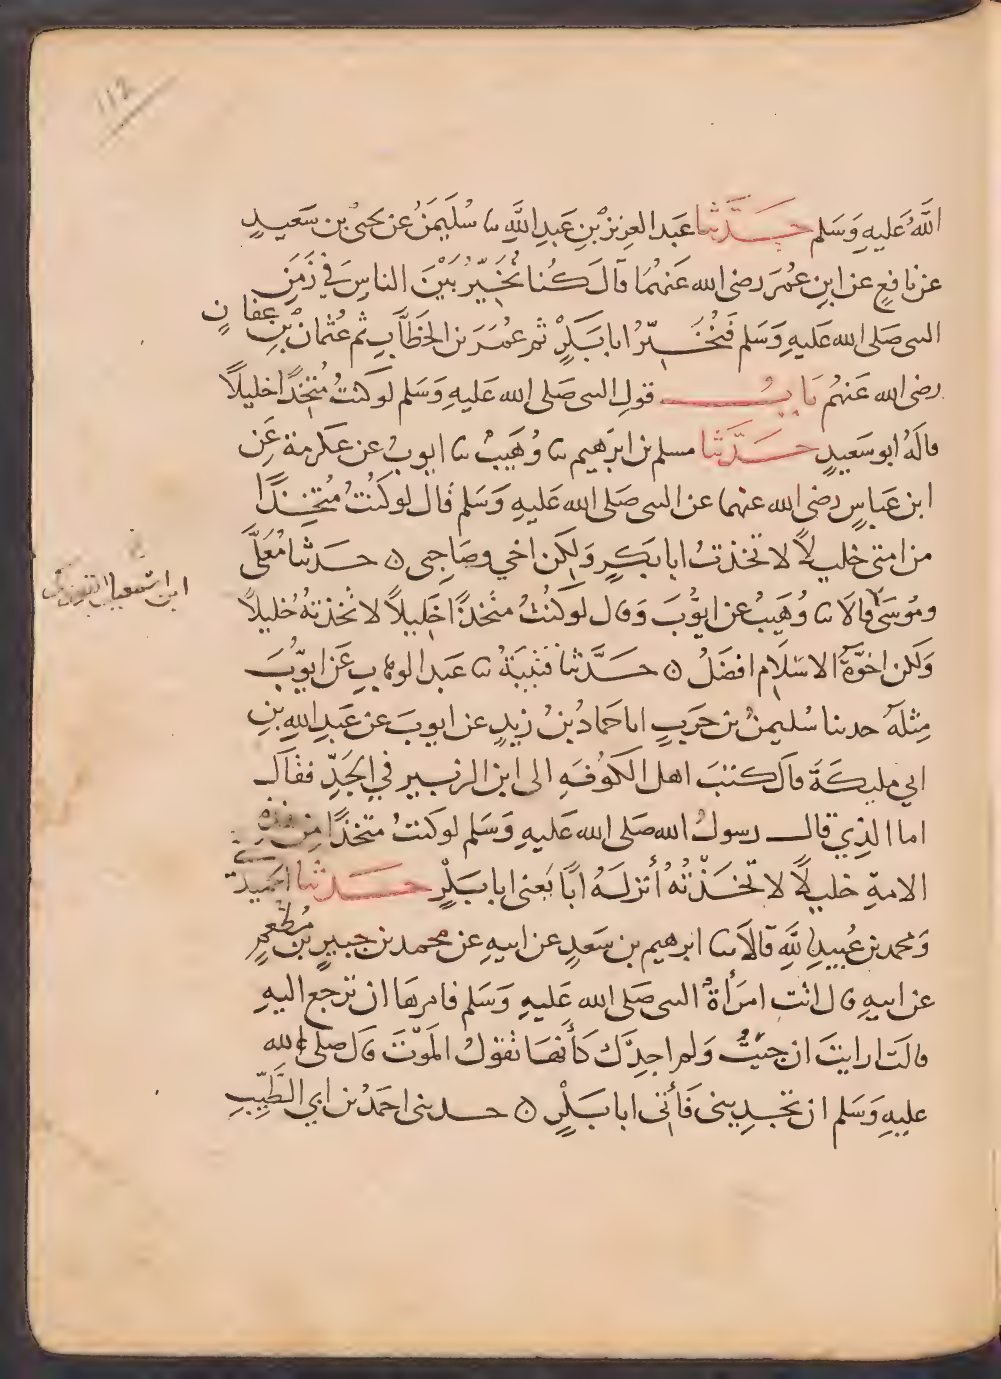 112
اللَّهُ عَلَيهِ وَسَلم حَدَّثَنا عَبد العزيز بْنِ عَبدِ اللَّهِ نا سُلَيمَنُ عن يحيَى بن سَعيدٍ
عن نافعٍ عن ابنِ عُمرَ رضى الله عَنهُمَا قالَ كُنا نُخَيِّرُ بَيْنَ الناسِ في زَمَنِ
النبى صَلى الله عَليهِ وَسَلم فَنُخَيِّرُ ابا بَكْرٍ ثم عُمَرَ بن الخطَّابِ ثم عُثمانَ بْنِ عفانٍ
رضى الله عَنهُم بَابُ قولِ النبى صَلى الله عَليهِ وَسَلم لو كنتُ مُتخِذًا خليلًا
قالَهُ ابو سَعيدٍ حَدَّثَنا مسلم بن ابرَهيم نا وُهَيبٌ نا ايوبُ عن عكرمة عَن
ابن عَباسٍ رضى الله عنهما عن النبى صَلى الله عَليهِ وَسَلم قال لو كنتُ مُتخِذًا
من امتى خليلًا لاتخذتُ ابا بَكرٍ وَلكن اخي وصَاحِبى ه حَدثنا مُعَلَّى
ومُوسَى قالا نا وُهَيبُ عن ايوُّبَ وَقال لو كنتُ متخذًا خَليلاً لاتخذتهُ خَليلاً
وَلكن اخوَّةُ الاسْلَام افضَلُ ه حَدَّثنا قتيبَةُ نا عَبد الوهابِ عَن ايوّبَ
مِثلهُ حدثنا سُليمنُ بن حَربٍ انا حَمادُ بنُ زيدٍ عن ايوبَ عن عَبدِ اللهِ بنِ
ابي مليكَةَ قالَ كتبَ اهل الكوُفَهِ الى ابن الزبيرِ في الجَدِّ فقالَ
اما الذِي قال رسولُ الله صَلى الله عَليهِ وَسَلم لو كنتُ متخذًا مِن هذه
الامةِ خليلًا لاتَّخَذْتُهُ أنزلَهُ ابًا يَعنى ابا بَكْرٍ حَدثنا الحميدى
وَمحمد بن عُبيدِ اللَّهِ قَالَا نا ابرهيم بن سَعدٍ عن ابيهِ عن محمد بن جبيرٍ بن مُطْعِمٍ
عن ابيهِ قال اتت امرَأةٌ النبى صَلى الله عَليهِ وَسَلم فامرهَا ان ترجع اليهِ
قالت ارايتَ ان جيتُ وَلم اجِدْكَ كأنهَا تَقولُ المَوْتَ قالَ صلى الله
عليهِ وَسَلم ان تجدِينى فَأتى ابا بَكْرٍ ه حَدثنى احمَدُ بن ابي الطَّيِّبِ
ابن اسمعيل